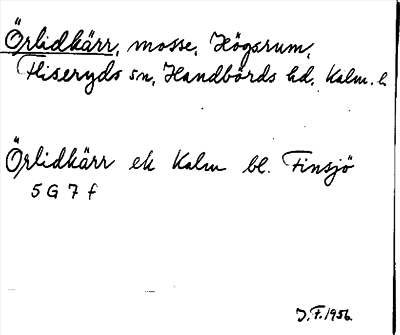 Örlidkärr, mosse, Högsrum,
Fliseryds sn, Handbörds hd, Kalm. l.
Örlidkärr ek Kalm bl. Finsjö
5 G 7 f
J.F. 1956.